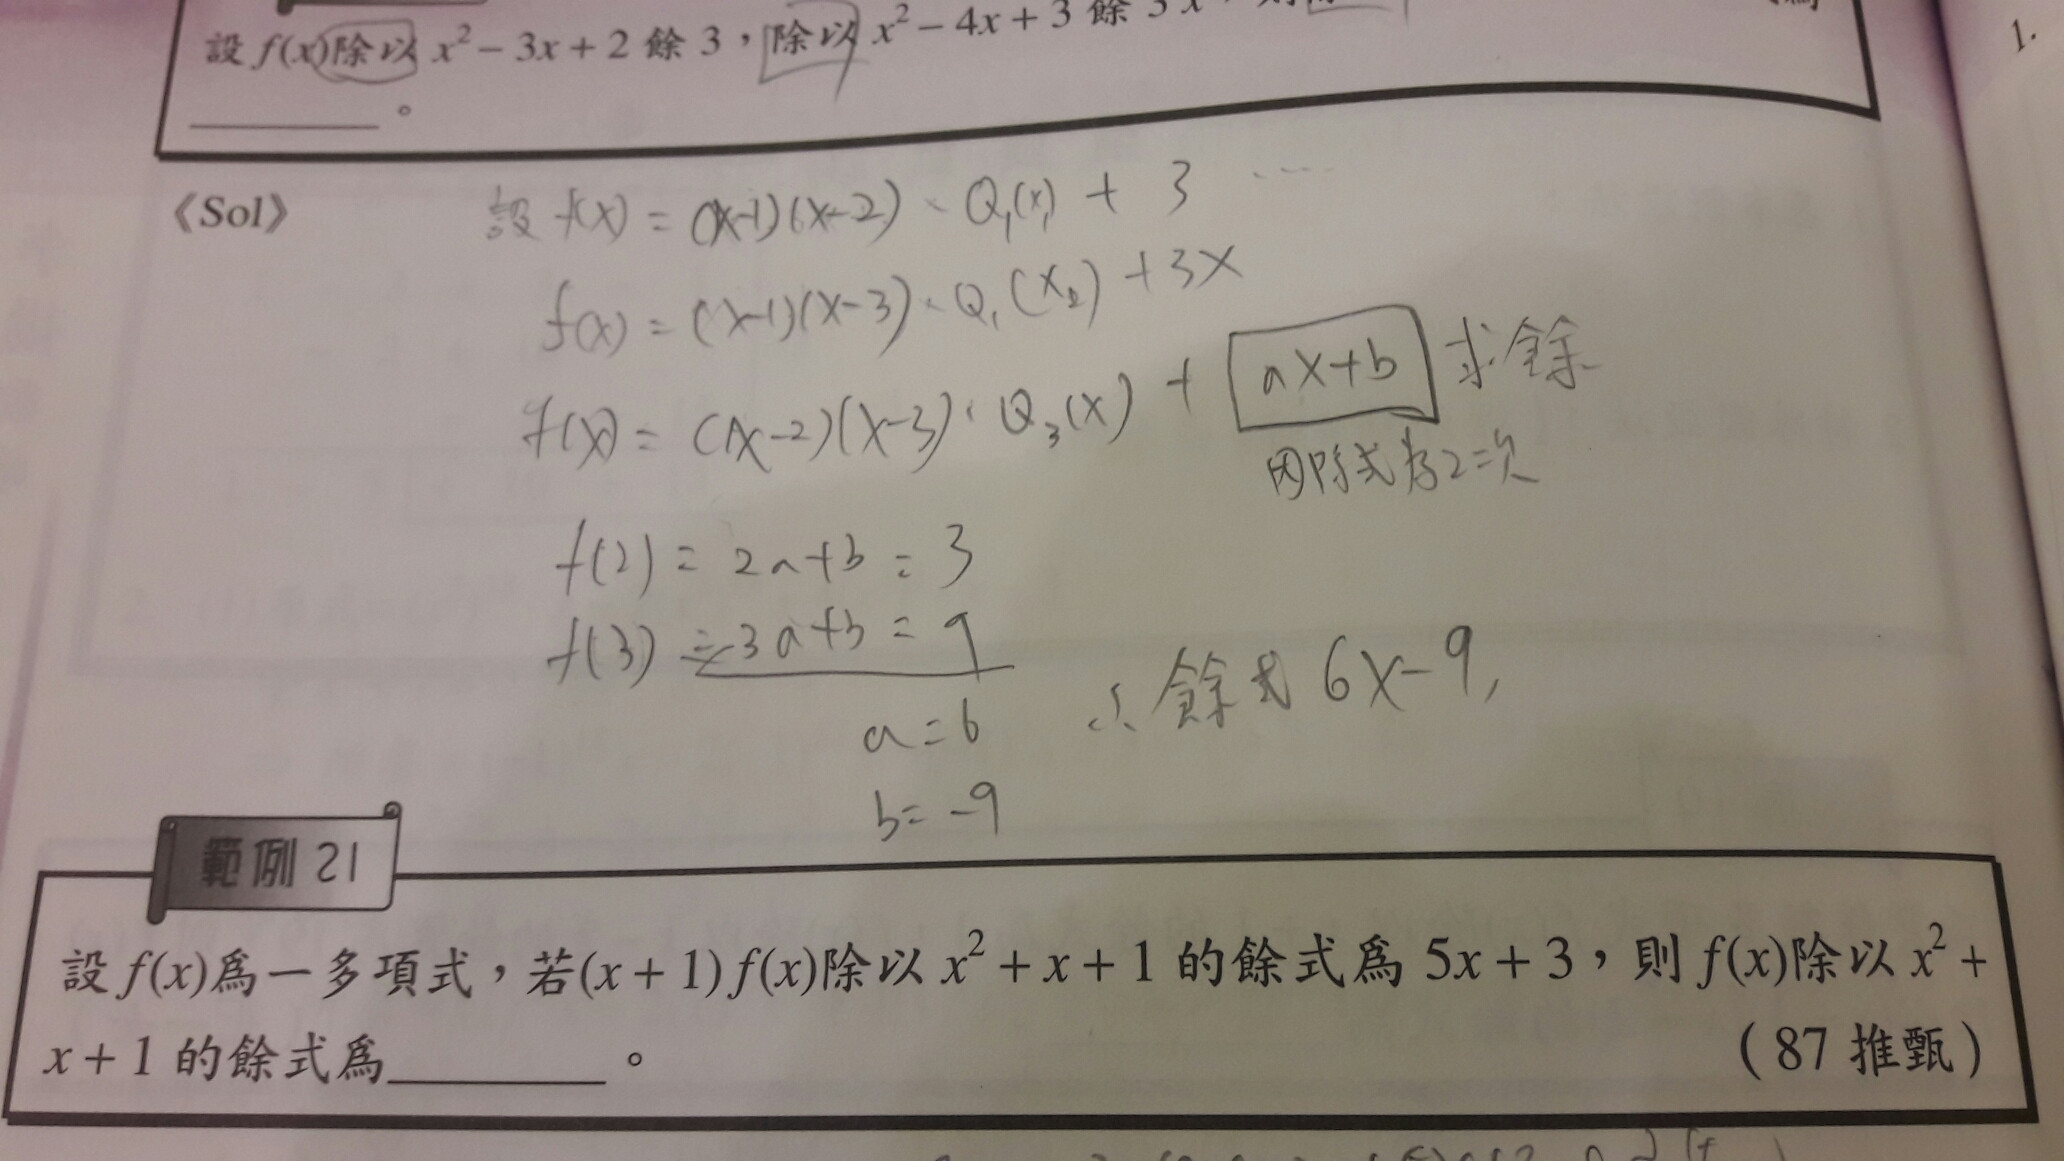 設 f(x)除以 x² − 3x + 2 餘 3，除以 x² − 4x + 3 餘 3x，則
________。
1.
《Sol》
設 f(x) = (x-1)(x-2)·Q₁(x) + 3 ......
f(x) = (x-1)(x-3)·Q₁(x₂) + 3x
f(x) = (x-2)(x-3)·Q₃(x) + ax+b 求餘
因除式為2=次
f(2) = 2a+b = 3
f(3) = 3a+b = 9
a = 6
b = -9
∴ 餘式 6x-9,
範例 21
設 f(x)為一多項式，若(x + 1) f(x)除以 x² + x + 1 的餘式為 5x + 3，則 f(x)除以 x² +
x + 1 的餘式為________。
（87 推甄）